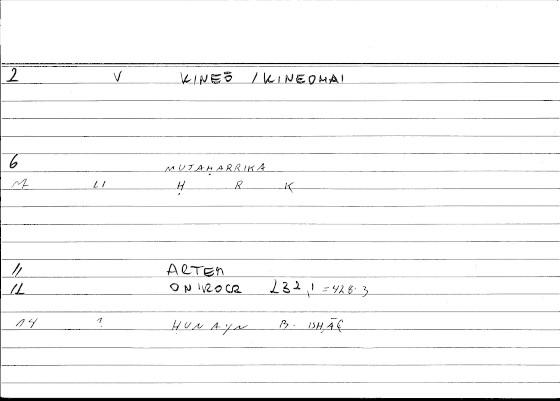 2 V KINEŌ / KINEOMAI
6 MUTAḤARRIKA
M LI Ḥ R K
11 ARTEM
12 ONIROCR 232,1 = 428.3
14 ? HUNAYN B. ISḤĀQ